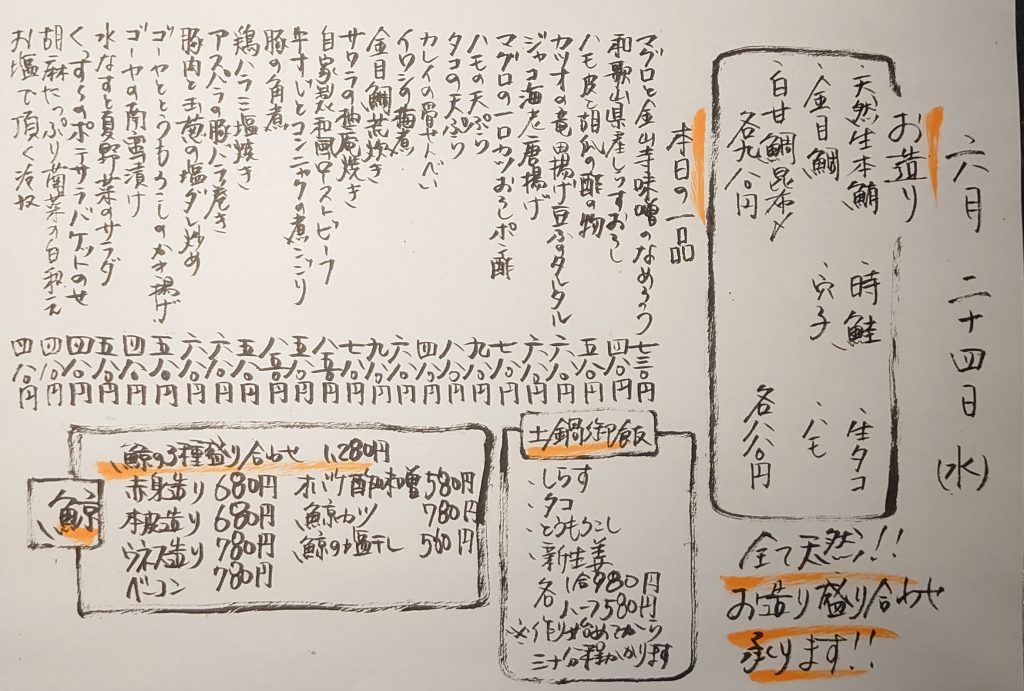 六月 二十四日(水)
お造り
・天然生本鮪 ・時鮭 ・生タコ
・金目鯛 ・穴子 ・ハモ
・白甘鯛昆布〆
各九八〇円 各八八〇円
全て天然!!
お造り盛り合わせ
承ります!!
本日の一品
マグロと金山寺味噌のなめろう 七三〇円
和歌山県産しらすおろし 四八〇円
ハモ皮と胡瓜の酢の物 五八〇円
カツオの竜田揚げ豆ふのタルタル 六八〇円
ジャコ海老唐揚げ 六八〇円
マグロの一口カツおろしポン酢 七八〇円
ハモの天ぷら 九八〇円
タコの天ぷら 八八〇円
カレイの骨せんべい 四八〇円
イワシの梅煮 六八〇円
金目鯛荒炊き 九八〇円
サワラの柚庵焼き 七八〇円
自家製和風ローストビーフ 八五〇円
牛すじとコンニャクの煮こごり 五八〇円
豚の角煮 八五〇円
鶏ハラミ塩焼き 五八〇円
アスパラの豚バラ巻き 六八〇円
豚肉と玉葱の塩ダレ炒め 六八〇円
ゴーヤととうもろこしのかき揚げ 五八〇円
ゴーヤの南蛮漬け 四八〇円
水なすと夏野菜のサラダ 五八〇円
くんすらのポテサラバゲットのせ 四八〇円
胡麻たっぷり菊菜の白和え 四八〇円
お塩で頂く冷奴 四八〇円
土鍋御飯
・しらす
・タコ
・とうもろこし
・新生姜
各 1合980円
ハーフ580円
※作り始めてから
三十分程かかります
鯨
・鯨の3種盛り合わせ 1,280円
・赤身造り 680円 ・オバケ酢味噌 580円
・本皮造り 680円 ・鯨カツ 780円
・ウネス造り 780円 ・鯨の塩干し 580円
・ベーコン 780円